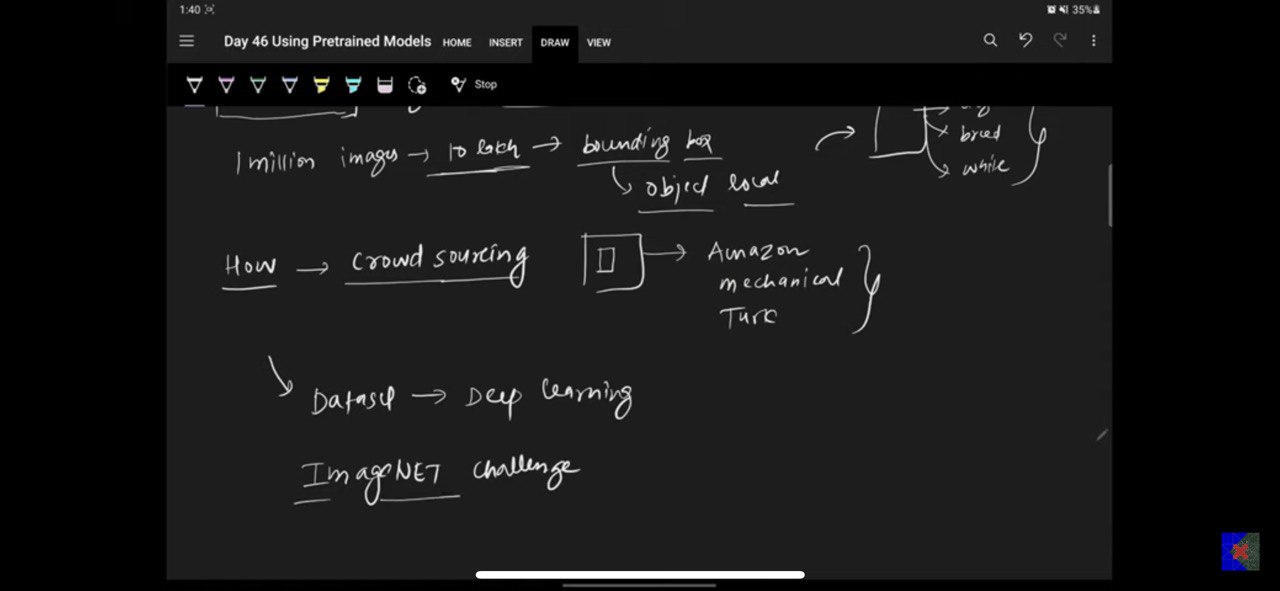 1:40 35%
Day 46 Using Pretrained Models HOME INSERT DRAW VIEW
Stop
1 million images → 10 lakh → bounding box
breed
white
object local
How → Crowd sourcing → Amazon
mechanical
Turk
Dataset → Deep learning
ImageNET challenge